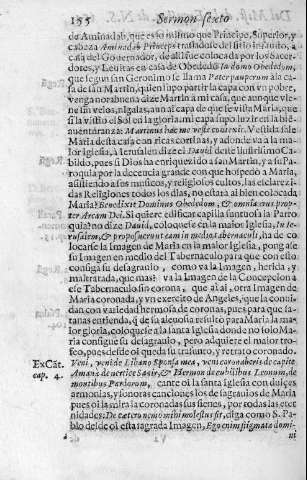 155 Sermon sexto
de Aminadab, que es lo mismo que Principe, Superior, y
cabeza Aminadab Princeps trasladose del sitio infausto, a
casa del Governador, de alli fue colocada por los Sacer-
dores, y Levitas en casa de Obededom In domo Obededom,
que segun san Geronimo se llama Pater pauperum a la ca-
sa de san Martin, quien supo partir la capa con un pobre,
venga norabuena dize Martin à mi casa, que aunque vie-
ne sin velos, ni galas, aun al capa de que se vista Maria, que
si la vistio el Sol en la gloria mi capa supo luzir en la bie-
nuenturãnza: Martinus hac me veste contexit. Vestida sale
Maria desta casa con ricas cortinas, y adonde va a la ma-
ior Iglesia, à Ierusalen dize el David deste Ilustrisimo Ca-
bildo, pues si Dios ha enriquezido à san Martin, y a su Pa-
roquia por la decencia grande con que hospedò a Maria,
asistiendo a sus musicos, y religiosos cultos, las esclarezi-
das Religiones todos los dias, no estarà ai bien colocada
Maria? Benedixit Dominus Obededom, & omnia eius prop-
ter Arcam Dei. Si quiere edificar capilla suntuosa la Parro
quia? no dize David, coloquese en la maior Iglesia, in Ie-
rusalem, & proposuerunt eam in medio tabernaculi, ha de co
locarse la Imagen de Maria en la maior Iglesia, pongase
su Imagen en medio del Tabernaculo para que con esto
consiga su desagravio, como va la Imagen, herida, y
maltratada, que mas? va la Imagen de la Concepcion a
ese Tabernaculo sin corona, que a la otra Imagen de
Maria coronada, y un exercito de Angeles, que la combi-
dan con variedad hermosa de coronas, pues para que se
maior gloria, coloquese a la santa Iglesia donde no solo Ma-
ria consigue su desagravio, pero adquiere el maior tro-
feo, pues desde oi queda su trasunto, y retrato coronado.
ExCãt. cap. 4. Veni, veni de Libano Sponsa mea, veni coronaberis de capite
Amana de vertice Sanir, & Hermon de cubilibus Leonum, de
montibus Pardorum, cante oi la santa Iglesia con dulzes
armonias, y sonoras canciones los desagravios de Maria
pues oi la mira coronada sus sienes, por todas las eter-
nidades: De cætero nemo mihi molestus sit, diga como S. Pa-
blo desde oi esta sagrada Imagen, Ego enim stigmata domi-
ni